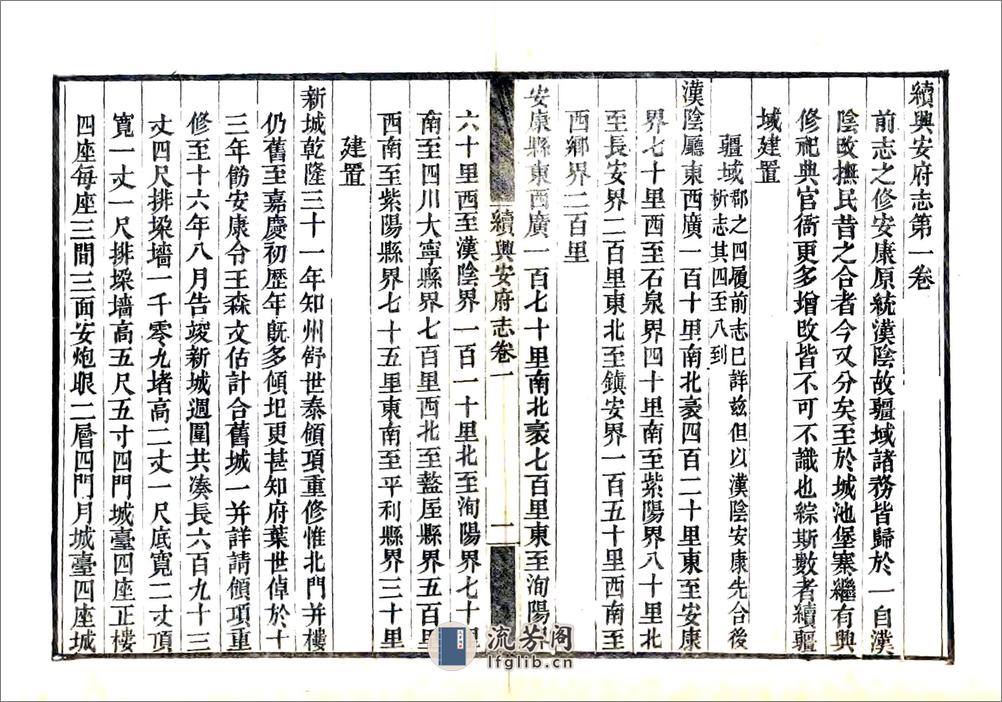 續興安府志第一卷
前志之修安康原統漢陰故疆域諸務皆歸於一自漢
陰改撫民昔之合者今又分矣至於城池堡寨繼有興
修祀典官衙更多增改皆不可不識也綜斯數者續疆
域建置
疆域 郡之四履前志已詳茲但以漢陰安康先合後
析志其四至八到
漢陰廳東西廣一百十里南北袤四百二十里東至安康
界七十里西至石泉界四十里南至紫陽界八十里北
至長安界二百里東北至鎮安界一百五十里西南至
西鄉界二百里
安康縣東西廣一百七十里南北袤七百里東至洵陽
續興安府志卷一
一
六十里西至漢陰界一百一十里北至洵陽界七十里
南至四川大寧縣界七百里西北至盩厔縣界五百里
西南至紫陽縣界七十五里東南至平利縣界三十里
建置
新城乾隆三十一年知州舒世泰領項重修惟北門并樓
仍舊至嘉慶初歷年旣多傾圯更甚知府葉世倬於十
三年飭安康令王森文估計合舊城一并詳請領項重
修至十六年八月告竣新城週圍共湊長六百九十三
丈四尺排垜墻一千零九堵高二丈一尺底寬二丈頂
寬一丈一尺排垜墻高五尺五寸四門城臺四座正樓
四座每座三間三面安炮眼二層四門月城臺四座城
流芳阁
lfglib.cn